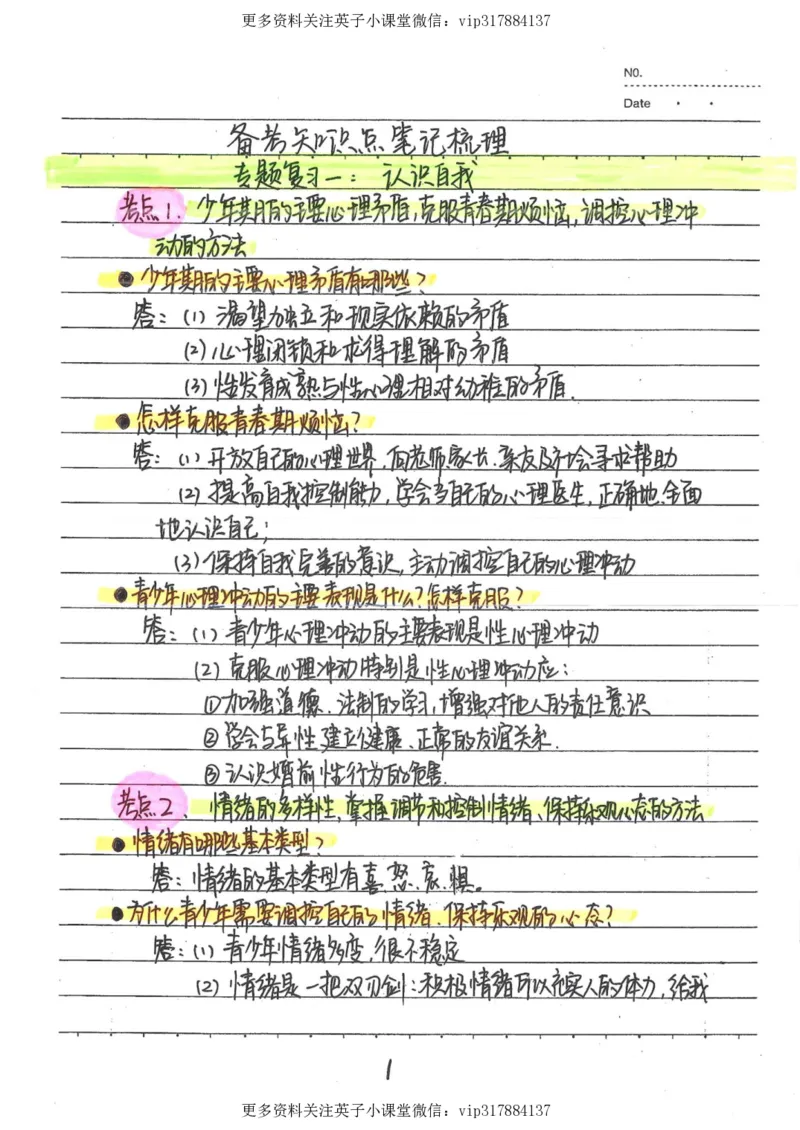 更多资料关注英子小课堂微信：vip317884137
NO.
Date
备考知识点笔记梳理
专题复习一：认识自我
考点1、少年期的主要心理矛盾,克服青春期烦恼,调控心理冲
动的方法
●少年期的主要心理矛盾有哪些？
答：(1) 渴望独立和现实依赖的矛盾
(2) 心理闭锁和求得理解的矛盾
(3) 性发育成熟与性心理相对幼稚的矛盾.
●怎样克服青春期烦恼？
答：(1) 开放自己的心理世界,向老师、家长、亲友及社会寻求帮助
(2) 提高自我控制能力,学会当自己的心理医生,正确地、全面
地认识自己；
(3) 保持自我完善的意识,主动调控自己的心理冲动
●青少年心理冲动的主要表现是什么？怎样克服？
答：(1) 青少年心理冲动的主要表现是性心理冲动
(2) 克服心理冲动特别是性心理冲动应：
①加强道德、法制的学习,增强对他人的责任意识
②学会与异性建立健康、正常的友谊关系.
③认识婚前性行为的危害.
考点2、情绪的多样性,掌握调节和控制情绪、保持乐观心态的方法
●情绪有哪些基本类型？
答：情绪的基本类型有喜、怒、哀、惧。
●为什么青少年需要调控自己的情绪、保持乐观的心态？
答：(1) 青少年情绪多变,很不稳定
(2) 情绪是一把双刃剑：积极情绪可以充实人的体力,给我
1
更多资料关注英子小课堂微信：vip317884137